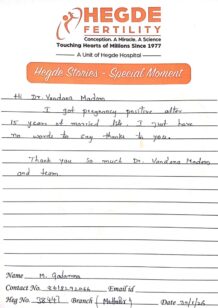 HEGDE
FERTILITY
Conception. A Miracle. A Science
Touching Hearts of Millions Since 1977
A Unit of Hegde Hospital
Hegde Stories - Special Moment
Hi Dr. Vandana Madam
I got pregnancy positive after
15 years of married life I Just have
no words to say thanks to you.
Thank you so much Dr. Vandana Madam
and team
Name M.
Contact No. Email id
Heg No. Branch (Malkajiri) Date